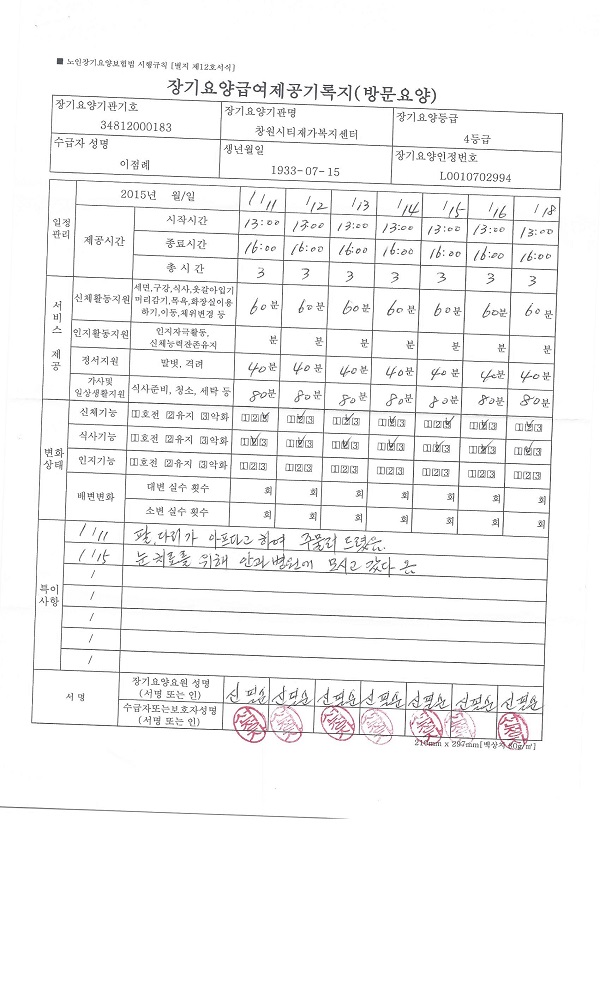 ■ 노인장기요양보험법 시행규칙 [별지 제12호서식]
장기요양급여제공기록지(방문요양)
장기요양기관기호 장기요양기관명 장기요양등급
34812000183 창원시티재가복지센터 4등급
수급자 성명 생년월일 장기요양인정번호
이점례 1933-07-15 L0010702994
일정관리 2015년 월/일 1/11 1/12 1/13 1/14 1/15 1/16 1/18
제공시간 시작시간 13:00 13:00 13:00 13:00 13:00 13:00 13:00
종료시간 16:00 16:00 16:00 16:00 16:00 16:00 16:00
총 시 간 3 3 3 3 3 3 3
서비스 제공
신체활동지원 세면,구강,식사,옷갈아입기 머리감기,목욕,화장실이용 하기,이동,체위변경 등 60분 60분 60분 60분 60분 60분 60분
인지활동지원 인지자극활동, 신체능력잔존유지 분 분 분 분 분 분 분
정서지원 말벗, 격려 40분 40분 40분 40분 40분 40분 40분
가사및 일상생활지원 식사준비, 청소, 세탁 등 80분 80분 80분 80분 80분 80분 80분
변화상태
신체기능 1호전 2유지 3악화 123 123 123 123 123 123 123
식사기능 1호전 2유지 3악화 123 123 123 123 123 123 123
인지기능 1호전 2유지 3악화 123 123 123 123 123 123 123
배변변화 대변 실수 횟수 회 회 회 회 회 회 회
소변 실수 횟수 회 회 회 회 회 회 회
특이사항
1/11 팔,다리가 아프다고 하여 주물러 드렸음.
1/15 눈 치료를 위해 안과병원에 모시고 갔다 옴
/
/
/
/
서 명 장기요양요원 성명 (서명 또는 인) 신필순 신필순 신필순 신필순 신필순 신필순 신필순
수급자또는보호자성명 (서명 또는 인)
210mm x 297mm[백상지 80g/㎡]